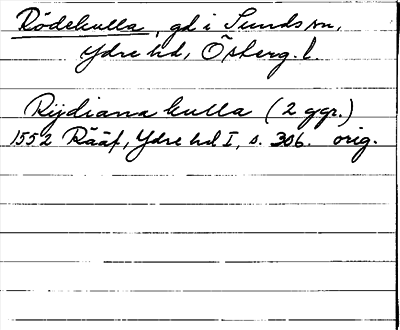 Rödekulla, gd i Sunds sn,
Ydre hd, Östergl.
Rijdiana kulla (2 ggr.)
1552 Rääf, Ydre hd I, s. 306. orig.